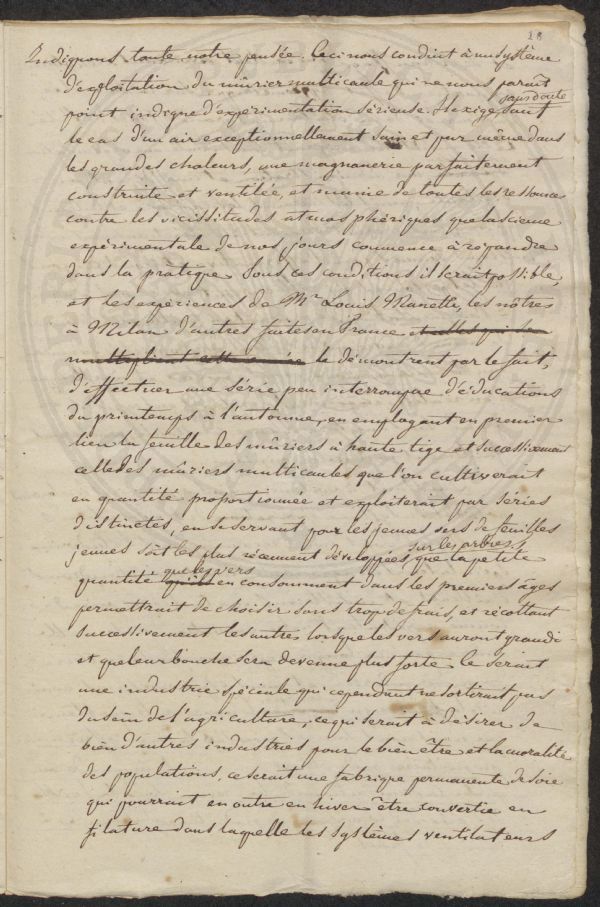 28
Indiquons toute notre pensée. Ceci nous conduit à un système
d'exploitation du mûrier multicaule qui ne nous paraît
point indigne d'expérimentation sérieuse. Il exige, sans doute
le cas d'un air exceptionnellement sain et pur même dans
les grandes chaleurs, une magnanerie parfaitement
construite et ventilée, et munie de toutes les ressources
contre les vicissitudes atmosphériques que la science
expérimentale de nos jours commence à répandre
dans la pratique. Sous ces conditions il serait possible,
et les expériences de Mr Louis Manetti, les nôtres
à Milan d'autres faites en France et celles qui se
multiplient cette année le démontrent par le fait,
d'effectuer une série peu interrompue d'éducations
du printemps à l'automne, en employant en premier
lieu la feuille des mûriers à haute tige et successivement
celle des mûriers multicaules que l'on cultiverait
en quantité proportionnée et exploiterait par séries
distinctes, en se servant pour les jeunes vers de feuilles
jeunes soit les plus récemment développées sur les arbres, que la petite
quantité qu'ils que les vers en consomment dans les premiers âges
permettrait de choisir sans trop de frais, et récoltant
successivement les autres lorsque les vers auront grandi
et que leur bouche sera devenue plus forte. Ce serait
une industrie spéciale qui cependant ne sortirait pas
du sein de l'agriculture, ce qui serait à désirer de
bien d'autres industries pour le bien être et la moralité
des populations, ce serait une fabrique permanente de soie
qui pourrait en outre en hiver être convertie en
filature dans laquelle les systèmes ventilateurs